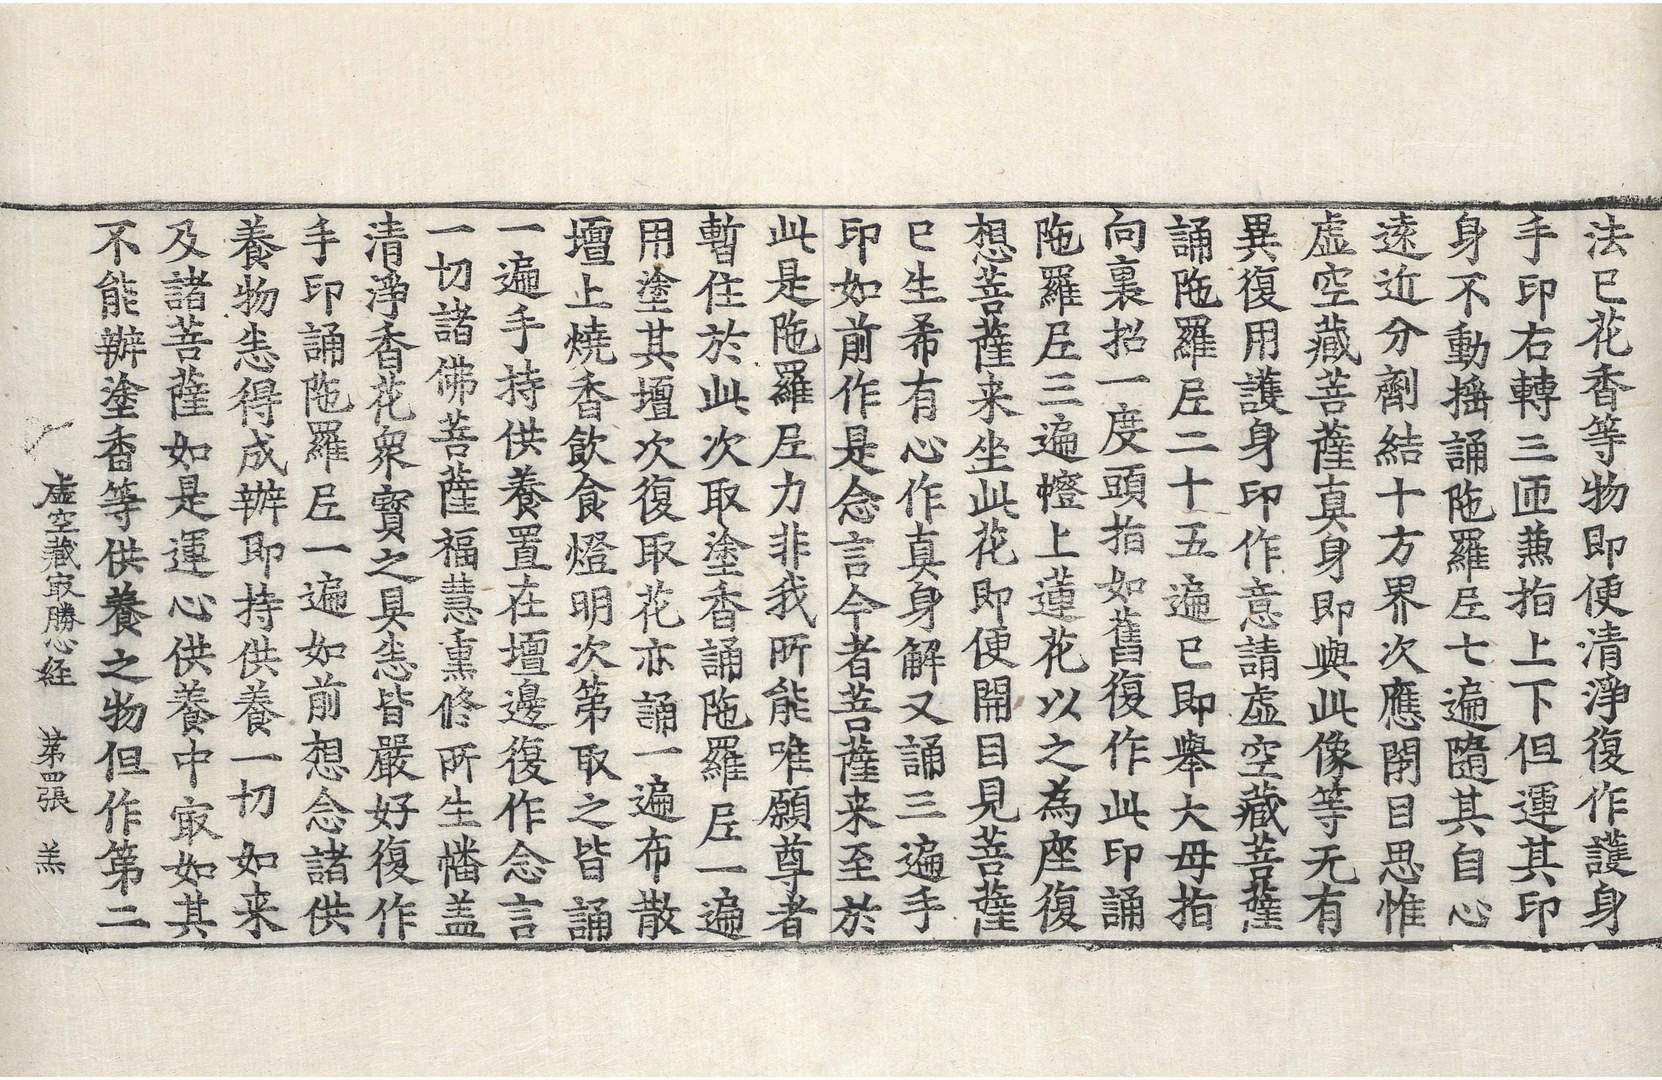 法已花香等物即便清淨復作護身
手印右轉三匝兼指上下但運其印
身不動揺誦陁羅𡰱七遍隨其自心
遠近分劑結十方界次應閇目思惟
虛空藏菩薩真身即與此像等无有
異復用護身印作意請虛空藏菩薩
誦陁羅𡰱二十五遍已即舉大母指
向裏招一度頭指如舊復作此印誦
陁羅𡰱三遍壇上蓮花以之為座復
想菩薩来坐此花即便開目見菩薩
已生希有心作真身解又誦三遍手
印如前作是念言今者菩薩来至於
此是陁羅𡰱力非我所能唯願尊者
暫住於此次取塗香誦陁羅𡰱一遍
用塗其壇次復取花亦誦一遍布散
壇上燒香飲食燈明次第取之皆誦
一遍手持供養置在壇邊復作念言
一切諸佛菩薩福慧熏修所生幡盖
清淨香花衆寳之具𢙣皆嚴好復作
手印誦陁羅𡰱一遍如前想念諸供
養物悉得成辦即持供養一切如来
及諸菩薩如是運心供養中㝡如其
不能辦塗香等供養之物但作第二
虛空藏㝡勝心経 第四張 羔